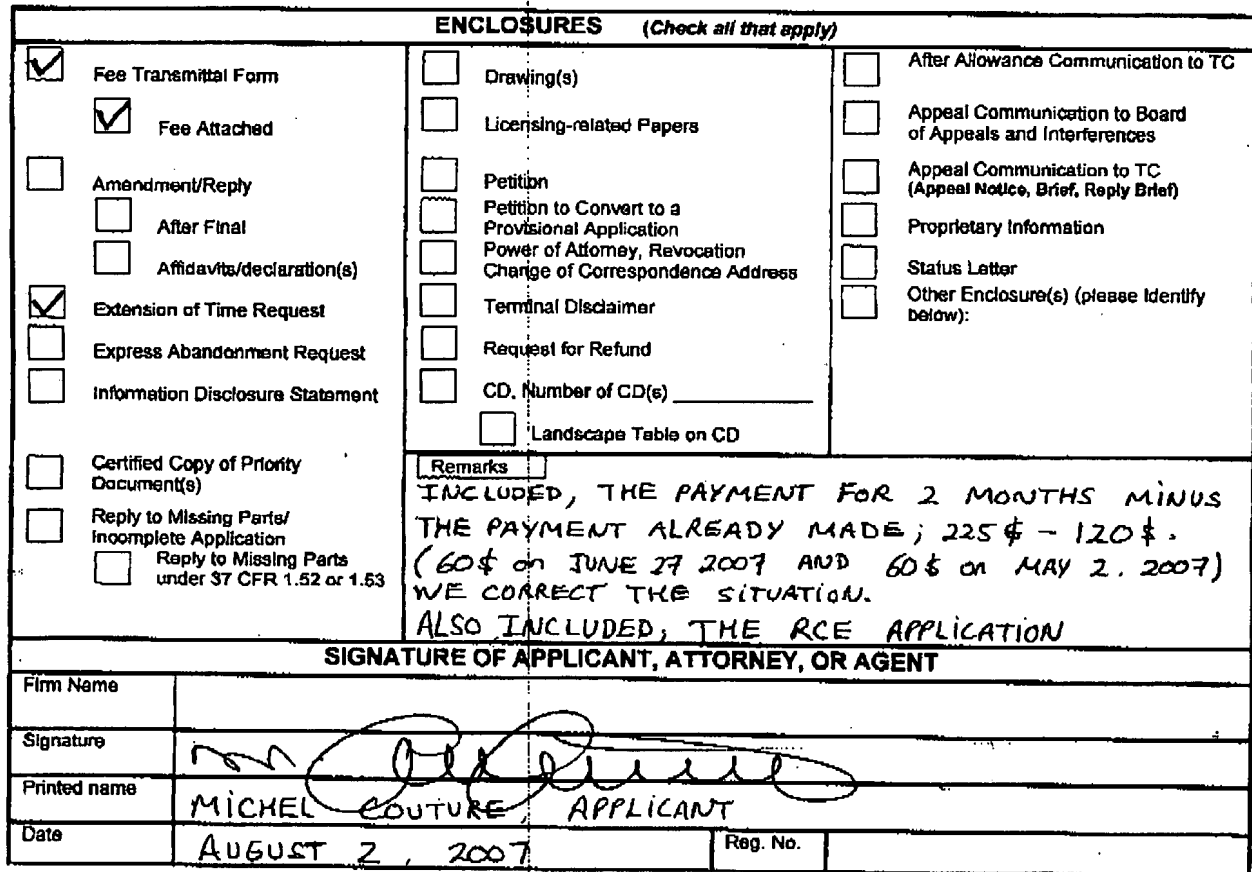 ENCLOSURES (Check all that apply)
Fee Transmittal Form
Fee Attached
Amendment/Reply
After Final
Affidavits/declaration(s)
Extension of Time Request
Express Abandonment Request
Information Disclosure Statement
Certified Copy of Priority
Document(s)
Reply to Missing Parts/
Incomplete Application
Reply to Missing Parts
under 37 CFR 1.52 or 1.53
Drawing(s)
Licensing-related Papers
Petition
Petition to Convert to a
Provisional Application
Power of Attorney, Revocation
Change of Correspondence Address
Terminal Disclaimer
Request for Refund
CD, Number of CD(s) ____________
Landscape Table on CD
After Allowance Communication to TC
Appeal Communication to Board
of Appeals and Interferences
Appeal Communication to TC
(Appeal Notice, Brief, Reply Brief)
Proprietary Information
Status Letter
Other Enclosure(s) (please Identify
below):
Remarks
INCLUDED, THE PAYMENT FOR 2 MONTHS MINUS
THE PAYMENT ALREADY MADE; 225$ - 120$.
(60$ on JUNE 27 2007 AND 60$ on MAY 2. 2007)
WE CORRECT THE SITUATION.
ALSO INCLUDED, THE RCE APPLICATION
SIGNATURE OF APPLICANT, ATTORNEY, OR AGENT
Firm Name
Signature
Printed name
MICHEL COUTURE, APPLICANT
Date
AUGUST 2, 2007
Reg. No.